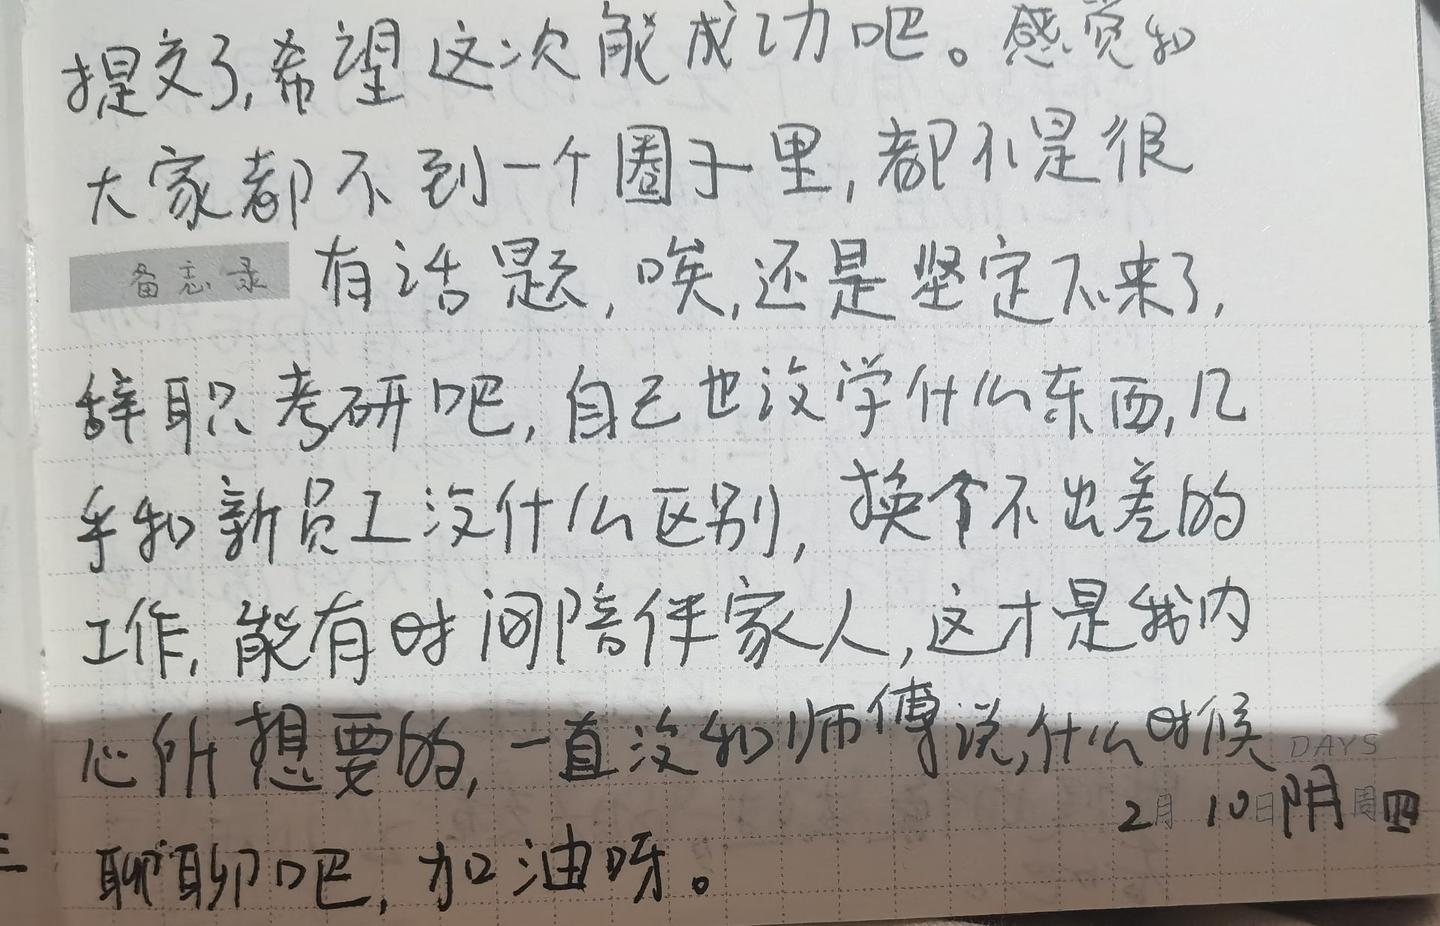 提交了,希望这次能成功吧。感觉和
大家都不到一个圈子里,都不是很
备忘录 有话题,唉,还是坚定下来了,
辞职考研吧,自己也没学什么东西,几
乎和新员工没什么区别,换个不出差的
工作,能有时间陪伴家人,这才是我内
心所想要的,一直没和师傅说,什么时候
DAYS
2月10日阴周四
聊聊吧,加油呀。